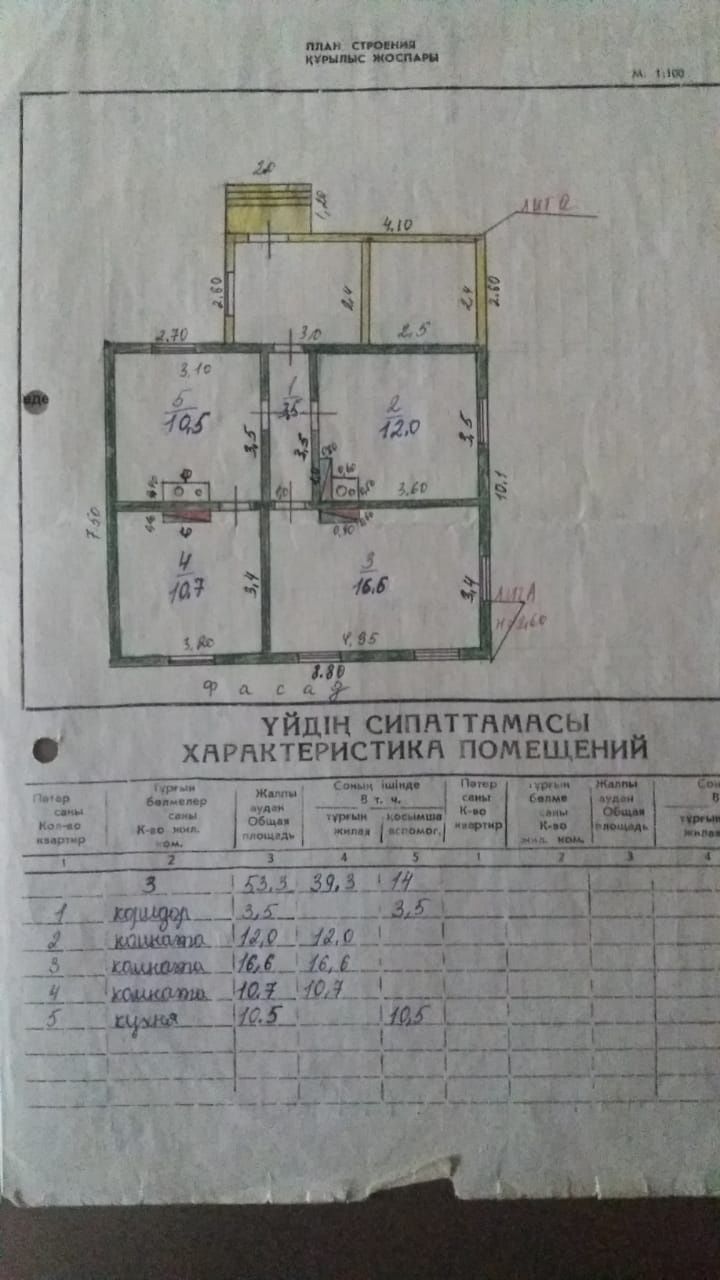 ПЛАН СТРОЕНИЯ
ҚҰРЫЛЫС ЖОСПАРЫ
М. 1:100
2.0
1,20
ЛИТ а
4.10
2.60
2.4
2.4
2.60
2.70
3.0
2.5
3.10
5
10,5
1
3,5
2
12.0
3,5
3,5
3,5
10.1
3.60
0,60
7.50
1,0
0,90
4
10.7
3,4
3
16.6
3,4
ЛИТ А
н=2,60
3.20
4.95
8.80
Фасад
ҮЙДІҢ СИПАТТАМАСЫ
ХАРАКТЕРИСТИКА ПОМЕЩЕНИЙ
Пәтер саны Кол-во квартир
Тұрғын бөлмелер саны К-во жил. ком.
Жалпы аудан Общая площадь
Соның ішінде В т. ч.
тұрғын жилая
қосымша вспомог.
Пәтер саны К-во квартир
тұрғын бөлме саны К-во жил. ком.
Жалпы аудан Общая площадь
Сон
В
тұрғы
жилая
1 2 3 4 5 1 2 3 4
3 53,3 39,3 14
1 коридор 3,5 3,5
2 комната 12,0 12.0
3 комната 16,6 16,6
4 комната 10,7 10,7
5 кухня 10.5 10,5